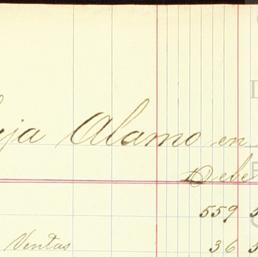 ja Alamo en
Debe
559
Ventas 36